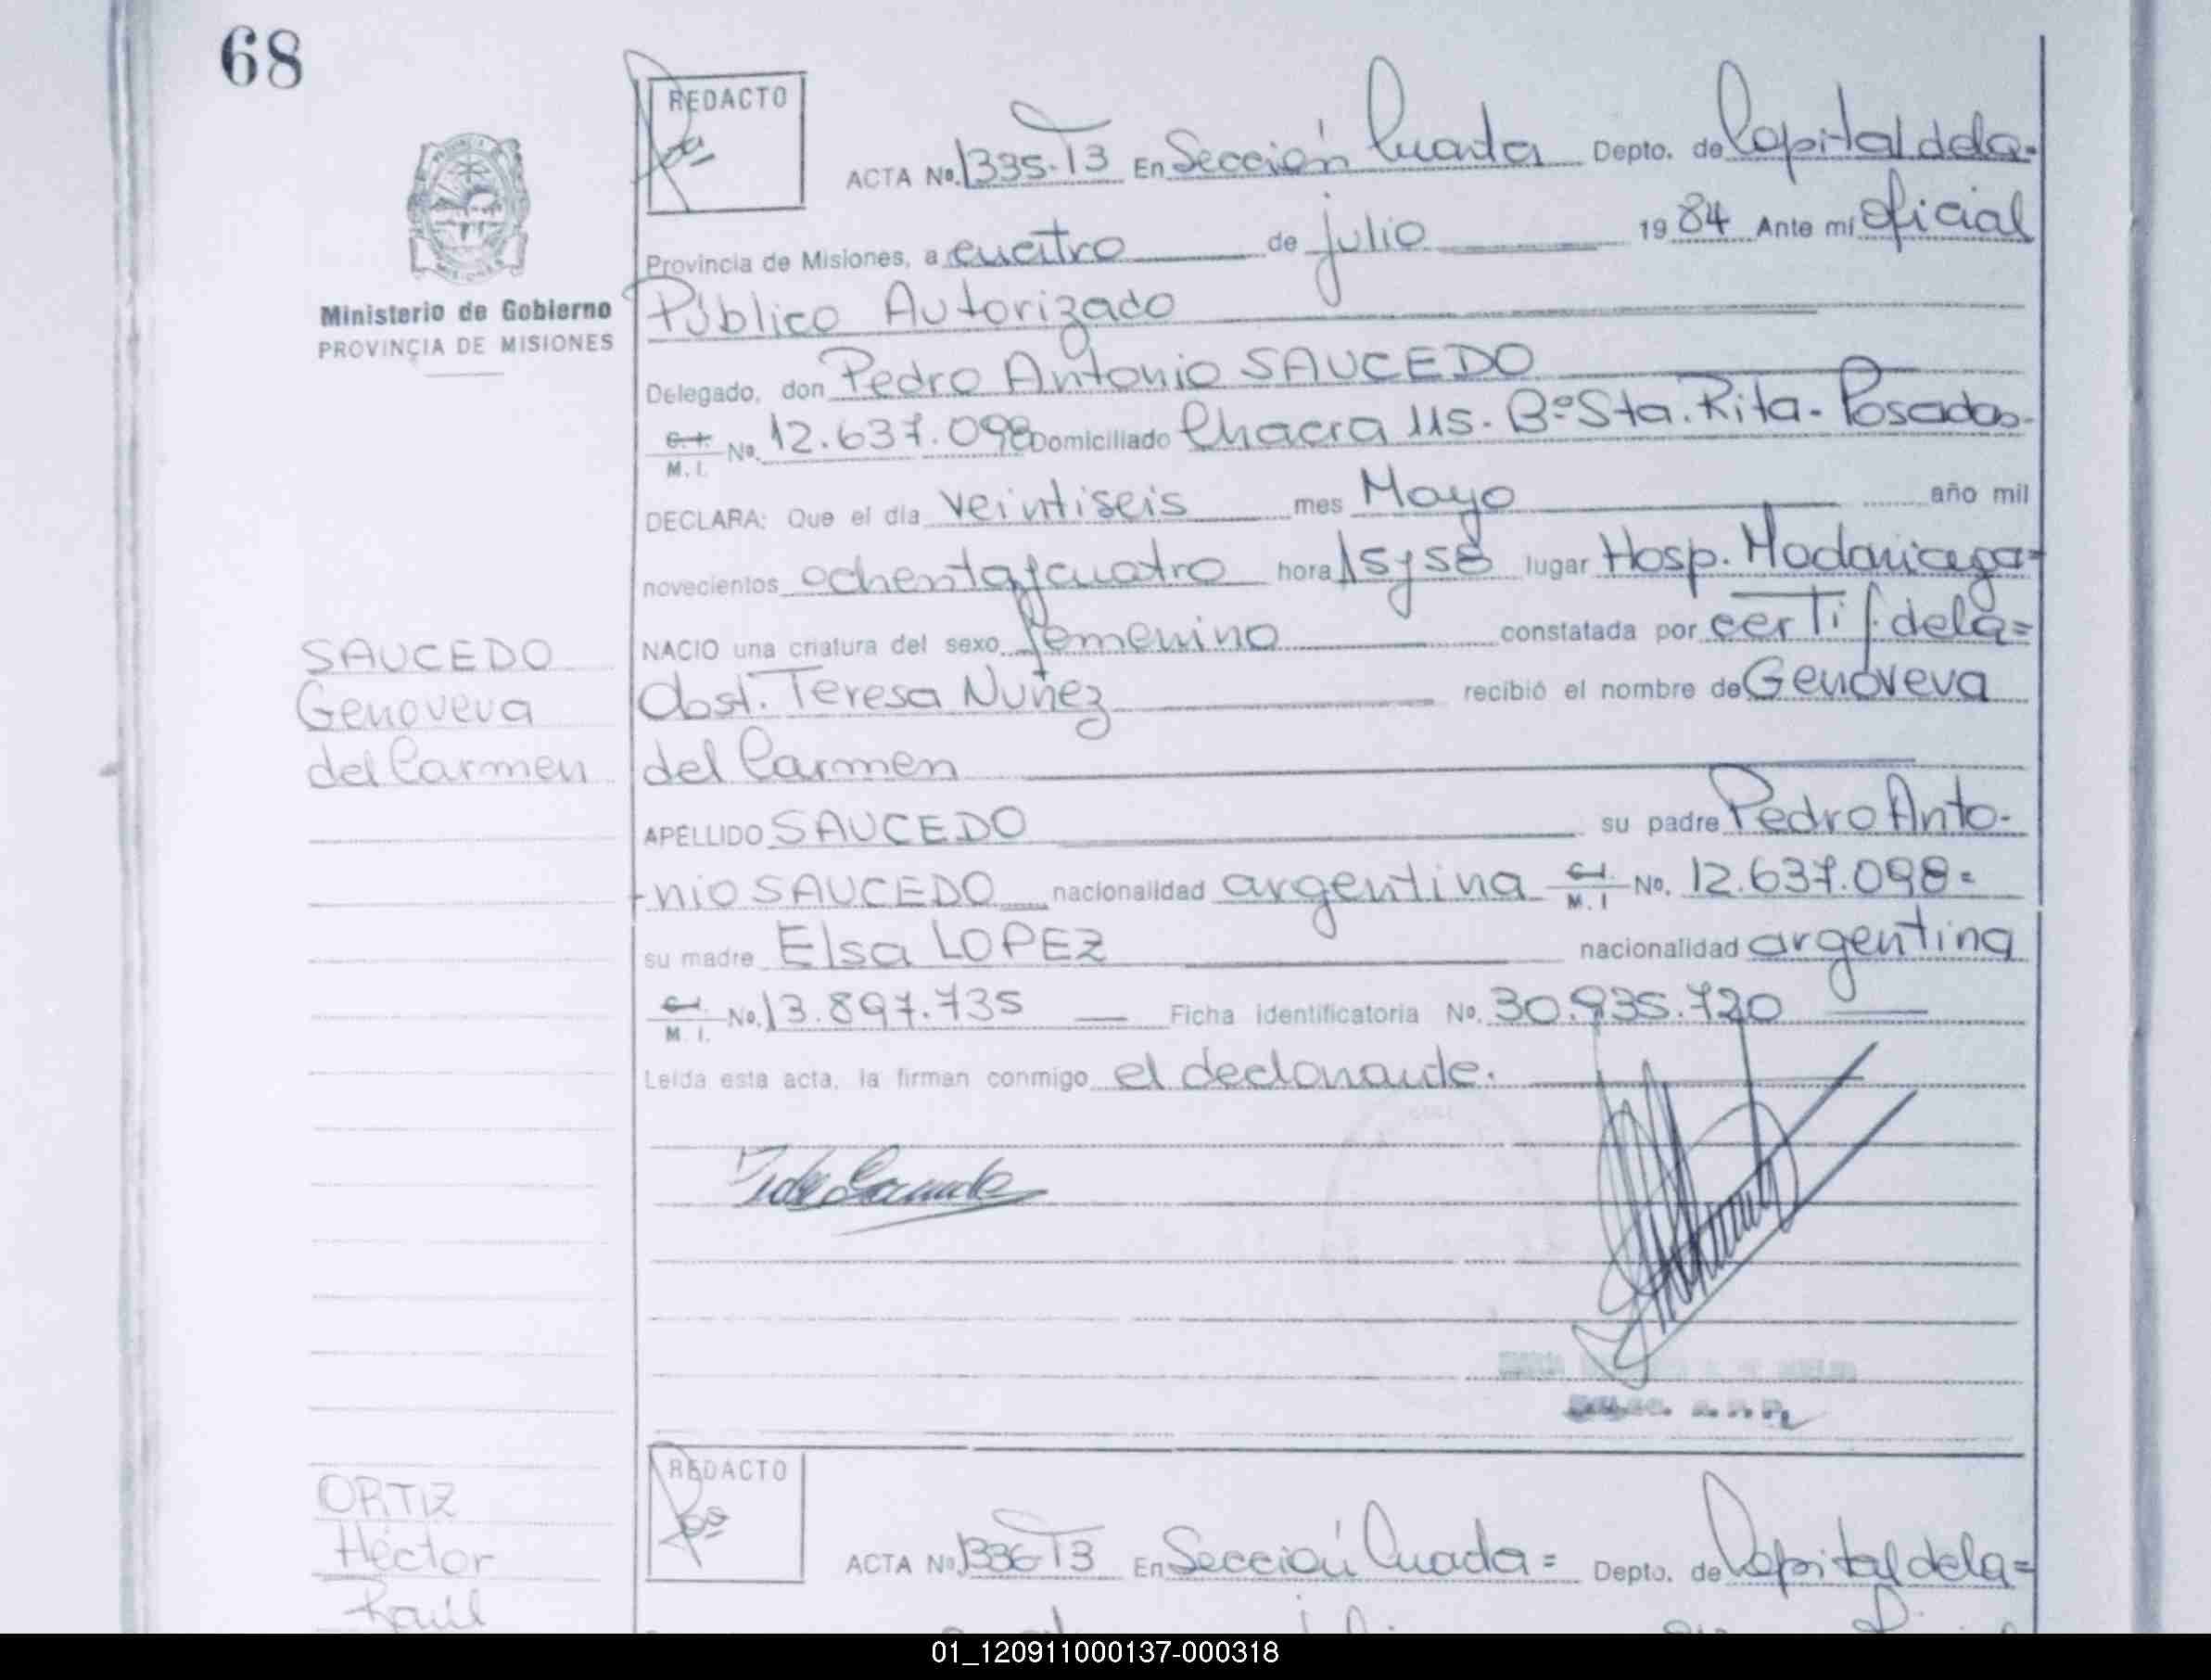 68
REDACTO
ACTA No. 1335-T3 En Sección Cuarta Depto. de Capital de la-
Provincia de Misiones, a cuatro de julio 1984 Ante mí Oficial
Ministerio de Gobierno
PROVINCIA DE MISIONES
Público Autorizado
Delegado, don Pedro Antonio SAUCEDO
C.I. M.I. No. 12.637.098 Domiciliado Chacra 115. Bº Sta. Rita. Posadas-
DECLARA: Que el día veintiseis mes Mayo año mil
novecientos ochenta y cuatro hora 15 y 58 lugar Hosp. Madariaga=
NACIO una criatura del sexo femenino constatada por certif. de la=
Obst. Teresa Nuñez recibió el nombre de Genoveva
del Carmen
SAUCEDO
Genoveva
del Carmen
APELLIDO SAUCEDO su padre Pedro Anto-
-nio SAUCEDO nacionalidad argentina C.I. M.I No. 12.637.098=
su madre Elsa LOPEZ nacionalidad argentina
C.I. M.I. No. 13.897.735 Ficha identificatoria No. 30.935.720
Leída esta acta, la firman conmigo el declarante.
ORTIZ
Héctor
Raúl
REDACTO
ACTA No. 1336-T3 En Sección Cuarta= Depto. de Capital de la=
01_120911000137-000318